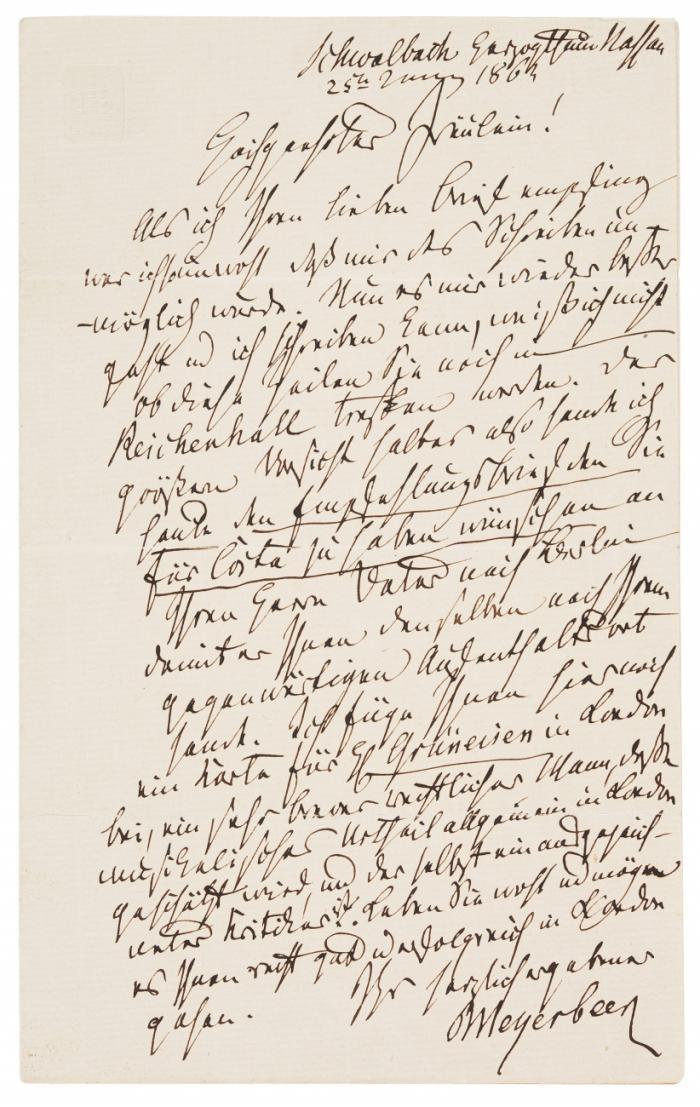 Schwalbach Herzogthum Nassau
25ten Juny 186
Hochgeehrtes Fräulein!
Als ich Ihren lieben Brief empfing
war ich so unwohl daß mir das Schreiben un-
-möglich wurde. Nun es mir wieder besser
geht u ich schreiben kann, weiß ich nicht
ob diese Zeilen Sie noch in
Reichenhall treffen werden. Der
größern Vorsicht halber also sende ich
heute den Empfehlungsbrief den Sie
für Costa zu haben wünschen an
Ihren Herrn Vater nach Berlin
damit er Ihnen denselben nach Ihrem
gegenwärtigen Aufenthaltsort
sende. Ich füge Ihnen hier noch
ein Karte für Grüneisen in London
bei, ein sehr braver rechtlicher Mann, deßen
musikalisches Urtheil allgemein in London
geschätzt wird, und der selbst ein ausgezeich-
neter Kritiker ist. Leben Sie wohl und mögen
es Ihnen recht gut u erfolgreich in London
gehen. Ihr herzlich ergebener
Meyerbeer